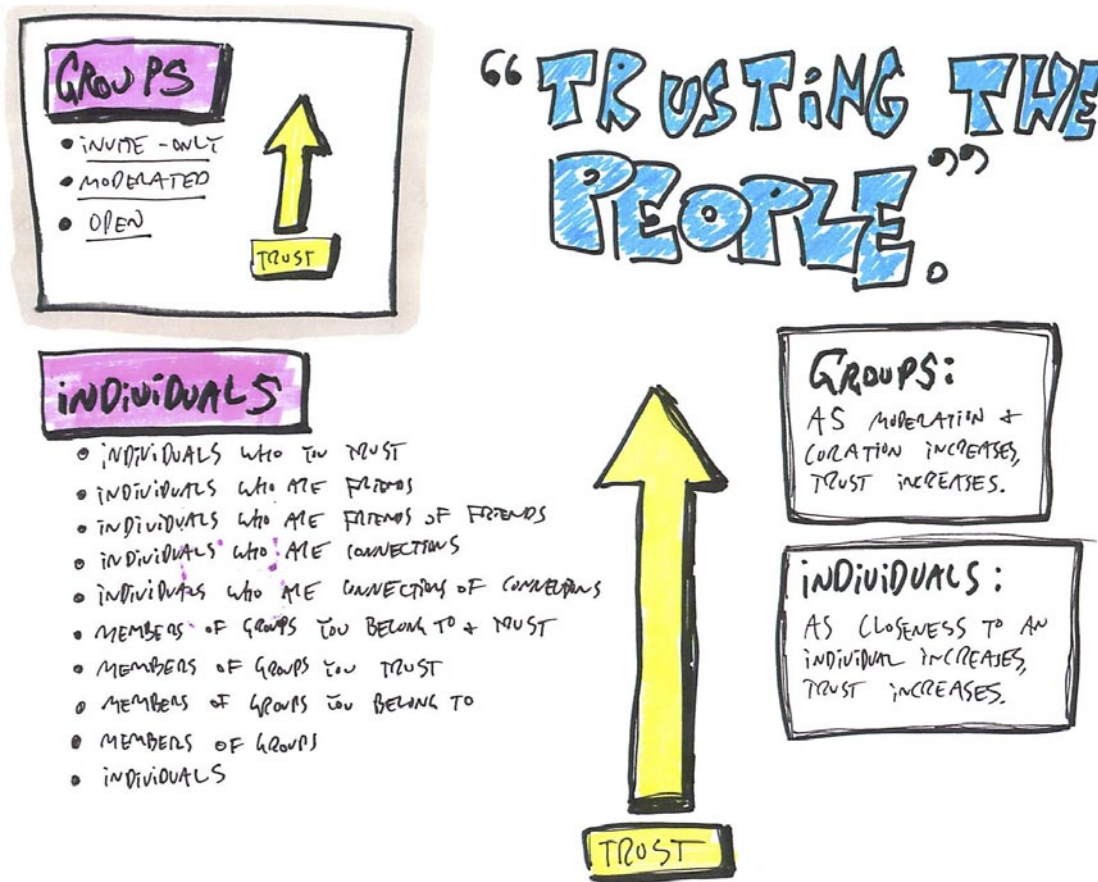 GROUPS
• INVITE-ONLY
• MODERATED
• OPEN
TRUST
“TRUSTING THE
PEOPLE.”
INDIVIDUALS
• INDIVIDUALS WHO YOU TRUST
• INDIVIDUALS WHO ARE FRIENDS
• INDIVIDUALS WHO ARE FRIENDS OF FRIENDS
• INDIVIDUALS WHO ARE CONNECTIONS
• INDIVIDUALS WHO ARE CONNECTIONS OF CONNECTIONS
• MEMBERS OF GROUPS YOU BELONG TO + TRUST
• MEMBERS OF GROUPS YOU TRUST
• MEMBERS OF GROUPS YOU BELONG TO
• MEMBERS OF GROUPS
• INDIVIDUALS
TRUST
GROUPS:
AS MODERATION +
CURATION INCREASES,
TRUST INCREASES.
INDIVIDUALS:
AS CLOSENESS TO AN
INDIVIDUAL INCREASES,
TRUST INCREASES.